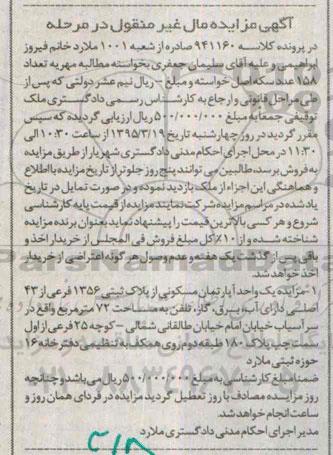 آگهی مزایده مال غیر منقول در مرحله
در پرونده کلاسه ۹۴۱۱۶۰ صادره از شعبه ۱۰۰۱ ملارد خانم فیروز
ابراهیمی و علیه آقای سلیمان جعفری بخواسته مطالبه مهریه تعداد
۱۵۸ عدد سکه اصل خواسته و مبلغ - ریال نیم عشر دولتی که پس از
طی مراحل قانونی و ارجاع به کارشناس رسمی دادگستری ملک
توقیفی جمعا به مبلغ ۵۰۰/۰۰۰/۰۰۰ ریال ارزیابی گردیده که سپس
مقرر گردید در روز چهارشنبه تاریخ ۱۳۹۵/۳/۱۹ از ساعت ۱۰:۳۰ الی
۱۱:۳۰ در محل اجرای احکام مدنی دادگستری شهریار از طریق مزایده
به فروش برسد، طالبین می توانند پنج روز جلوتر از تاریخ مزایده با اطلاع
و هماهنگی این اجراء از ملک بازدید نموده و در صورت تمایل در تاریخ
یاد شده در مراسم مزایده شرکت نمایند مزایده از قیمت پایه کارشناسی
شروع و هر کسی بالاترین قیمت را پیشنهاد نماید بعنوان برنده مزایده
شناخته شده و از ۱۰٪ کل مبلغ فروش فی المجلس از خریدار اخذ و
باقی پس از گذشت یک هفته و عدم وصول هر گونه اعتراضی از خریدار
اخذ خواهد شد.
۱-مزایده یک واحد آپارتمان مسکونی از پلاک ثبتی ۱۳۵۶ فرعی از ۴۳
اصلی دارای آب، برق، گاز، تلفن به مساحت ۷۲ مترمربع واقع در
سر آسیاب خیابان امام خیابان طالقانی شمالی - کوچه ۲۵ فرعی از اول
سمت چپ پلاک ۱۸۰ طبقه دوم روی همکف به تنظیمی دفترخانه ۱۶
حوزه ثبتی ملارد
ضمنا مبلغ کارشناسی به مبلغ ۵۰۰/۰۰۰/۰۰۰ ریال می باشد و چنانچه
روز مزایده مصادف با روز تعطیل گردید مزایده در فردای همان روز و
ساعت انجام خواهد شد.
مدیر اجرای احکام مدنی دادگستری ملارد